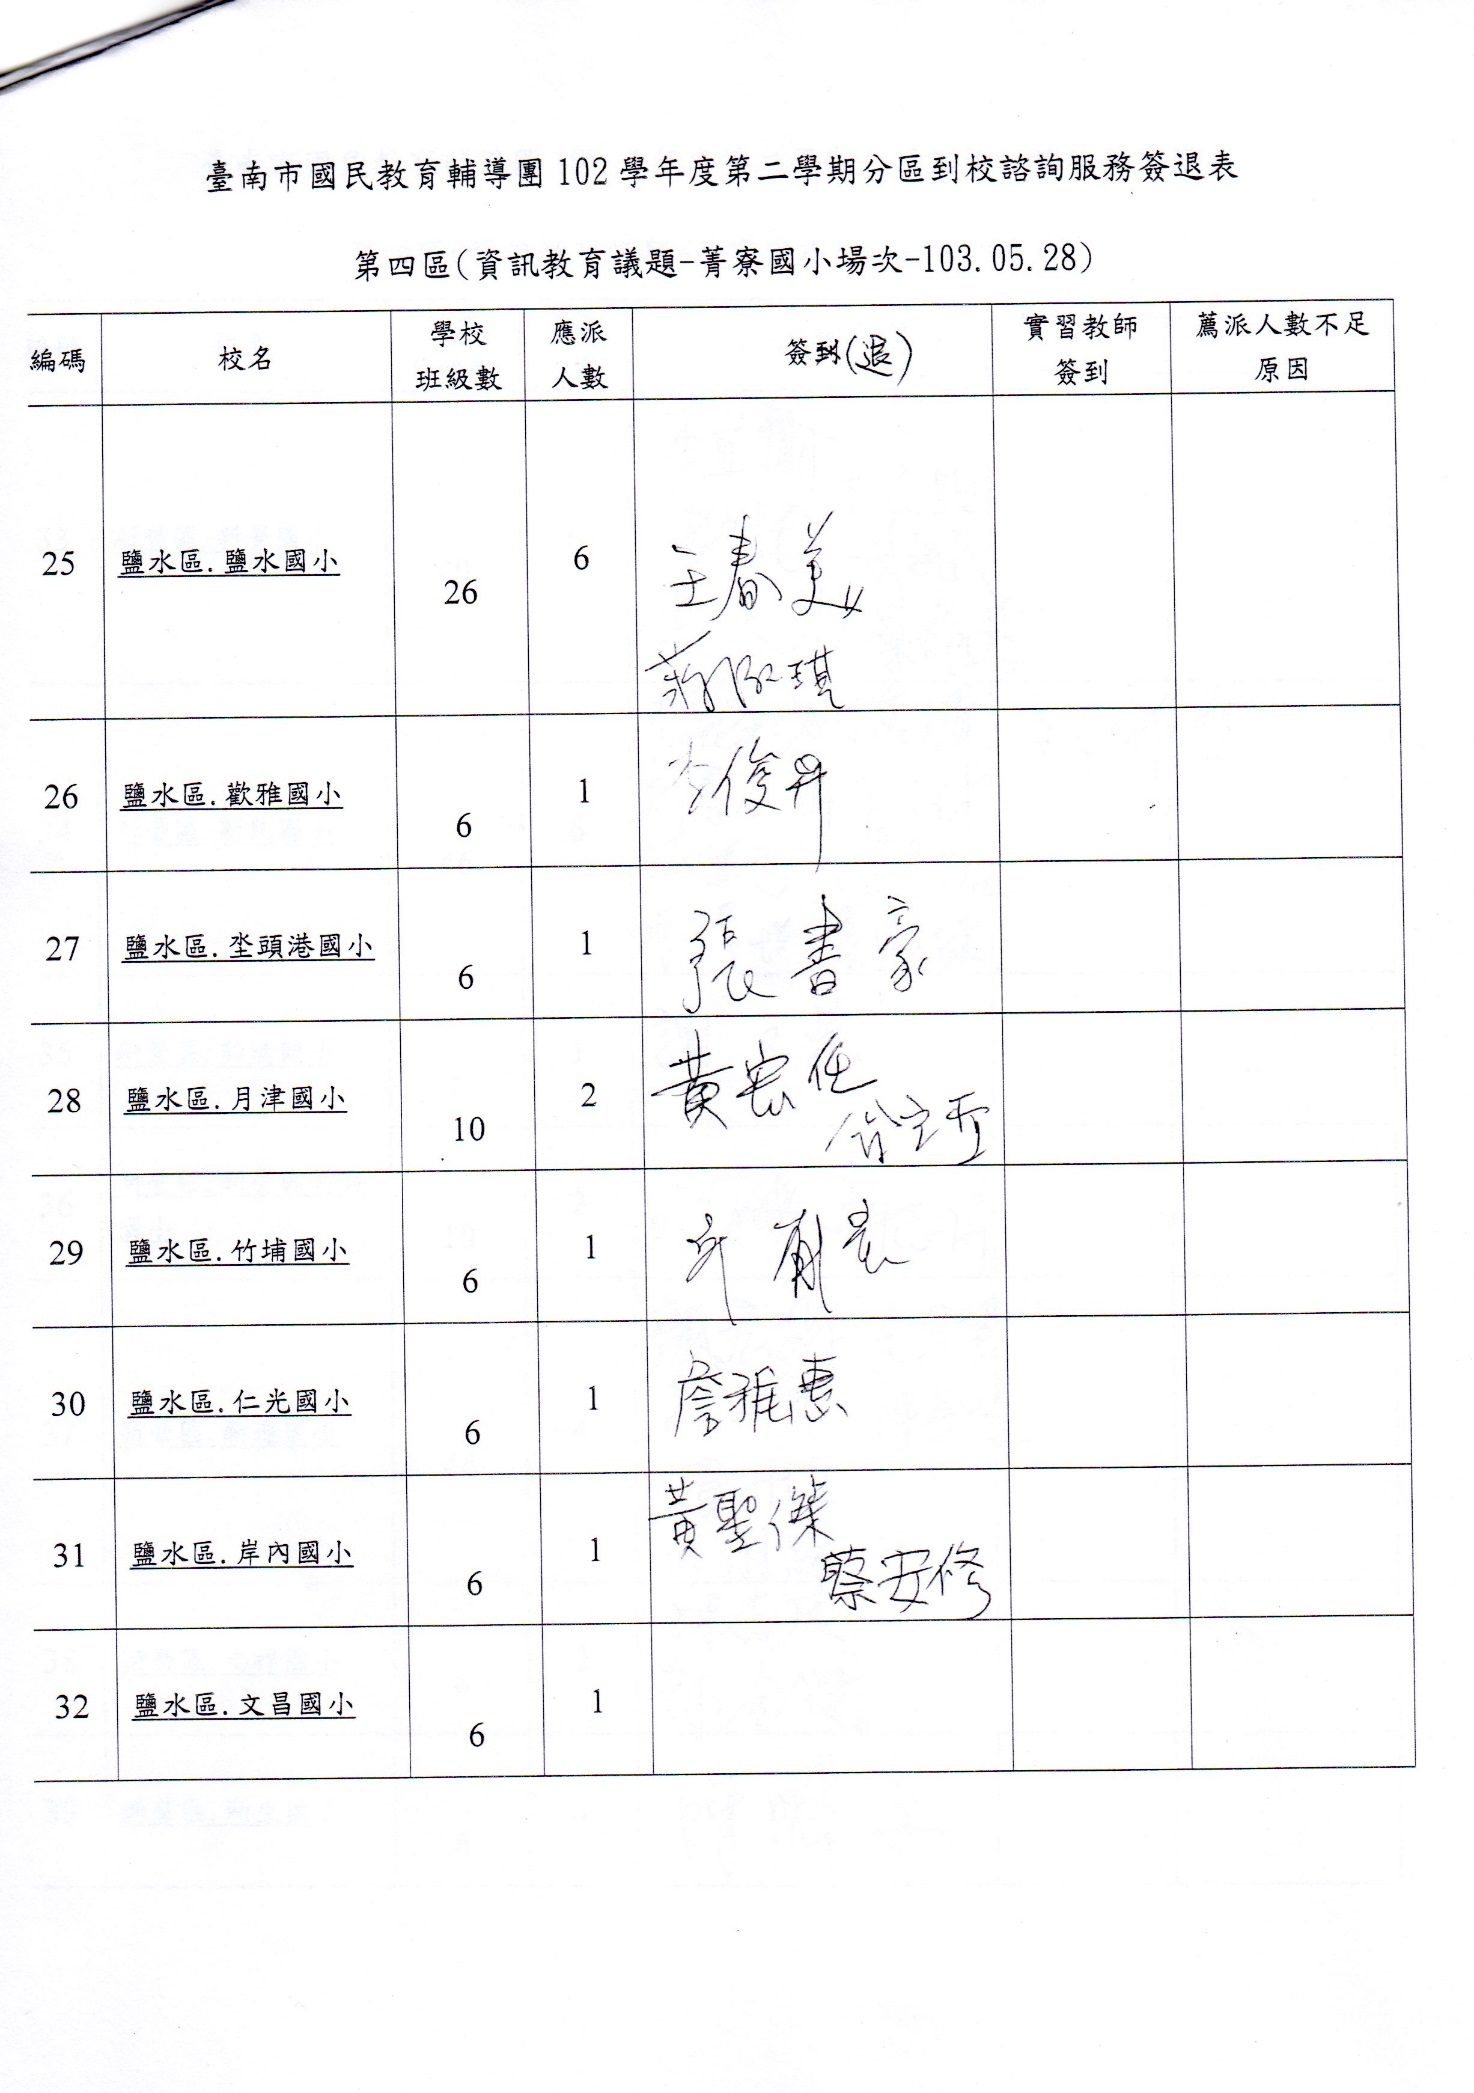 臺南市國民教育輔導團 102 學年度第二學期分區到校諮詢服務簽退表
第四區(資訊教育議題-菁寮國小場次-103.05.28)
編碼 校名 學校班級數 應派人數 簽到(退) 實習教師簽到 薦派人數不足原因
25 鹽水區.鹽水國小 26 6 王春美
蔣 琪
26 鹽水區.歡雅國小 6 1 李俊昇
27 鹽水區.坔頭港國小 6 1 張書豪
28 鹽水區.月津國小 10 2 黃宏任
29 鹽水區.竹埔國小 6 1
30 鹽水區.仁光國小 6 1 詹雅惠
31 鹽水區.岸內國小 6 1 黃聖傑
蔡安修
32 鹽水區.文昌國小 6 1